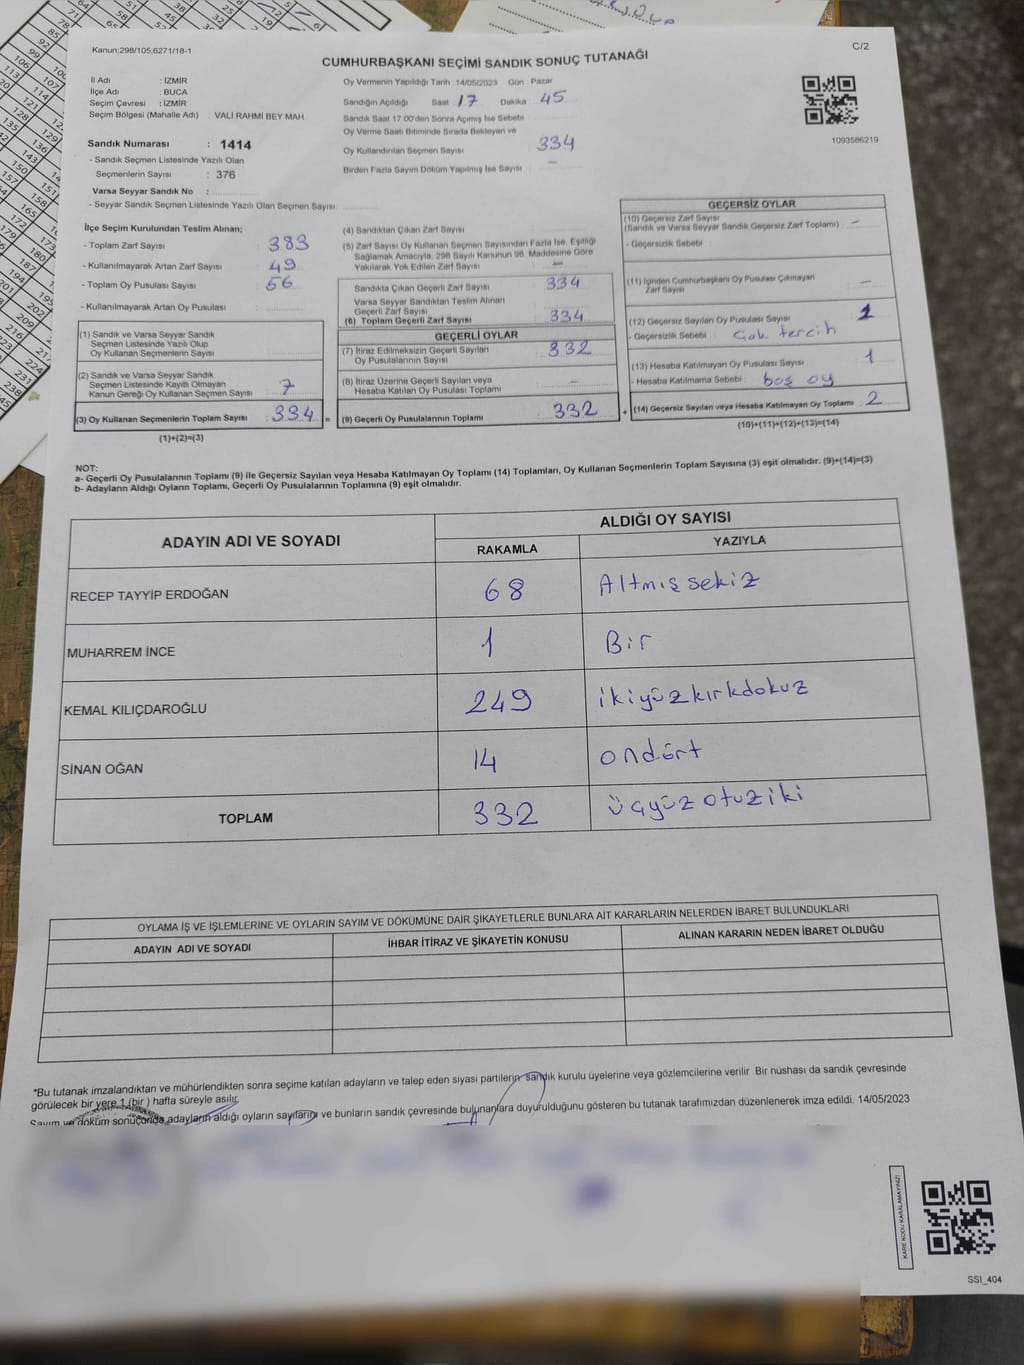 Kanun;298/105,6271/18-1
C/2
CUMHURBAŞKANI SEÇİMİ SANDIK SONUÇ TUTANAĞI
İl Adı : İZMİR
İlçe Adı : BUCA
Seçim Çevresi : İZMİR
Seçim Bölgesi (Mahalle Adı) : VALİ RAHMİ BEY MAH.
Oy Vermenin Yapıldığı Tarih 14/05/2023 Gün Pazar
Sandığın Açıldığı Saat 17 Dakika 45
Sandık Saat 17:00'den Sonra Açılmış İse Sebebi
Oy Verme Saati Bitiminde Sırada Bekleyen ve
Oy Kullandırılan Seçmen Sayısı 334
Birden Fazla Sayım Döküm Yapılmış İse Sayısı —
1093566219
Sandık Numarası : 1414
- Sandık Seçmen Listesinde Yazılı Olan
Seçmenlerin Sayısı : 376
Varsa Seyyar Sandık No :
- Seyyar Sandık Seçmen Listesinde Yazılı Olan Seçmen Sayısı:
İlçe Seçim Kurulundan Teslim Alınan;
- Toplam Zarf Sayısı : 383
- Kullanılmayarak Artan Zarf Sayısı : 49
- Toplam Oy Pusulası Sayısı : 56
- Kullanılmayarak Artan Oy Pusulası :
(1) Sandık ve Varsa Seyyar Sandık
Seçmen Listesinde Yazılı Olup
Oy Kullanan Seçmenlerin Sayısı
(2) Sandık ve Varsa Seyyar Sandık
Seçmen Listesinde Kayıtlı Olmayan
Kanun Gereği Oy Kullanan Seçmen Sayısı 7
(3) Oy Kullanan Seçmenlerin Toplam Sayısı 334 =
(1)+(2)=(3)
(4) Sandıktan Çıkan Zarf Sayısı
(5) Zarf Sayısı Oy Kullanan Seçmen Sayısından Fazla İse, Eşitliği
Sağlamak Amacıyla, 298 Sayılı Kanunun 98. Maddesine Göre
Yakılarak Yok Edilen Zarf Sayısı —
Sandıkta Çıkan Geçerli Zarf Sayısı 334
Varsa Seyyar Sandıktan Teslim Alınan
Geçerli Zarf Sayısı
(6) Toplam Geçerli Zarf Sayısı 334
GEÇERLİ OYLAR
(7) İtiraz Edilmeksizin Geçerli Sayılan
Oy Pusulalarının Sayısı 332
(8) İtiraz Üzerine Geçerli Sayılan veya
Hesaba Katılan Oy Pusulası Toplamı —
(9) Geçerli Oy Pusulalarının Toplamı 332 +
GEÇERSİZ OYLAR
(10) Geçersiz Zarf Sayısı
(Sandık ve Varsa Seyyar Sandık Geçersiz Zarf Toplamı) : —
- Geçersizlik Sebebi :
(11) İçinden Cumhurbaşkanı Oy Pusulası Çıkmayan
Zarf Sayısı —
(12) Geçersiz Sayılan Oy Pusulası Sayısı : 1
- Geçersizlik Sebebi : Çok tercih
(13) Hesaba Katılmayan Oy Pusulası Sayısı : 1
- Hesaba Katılmama Sebebi : boş oy
(14) Geçersiz Sayılan veya Hesaba Katılmayan Oy Toplamı 2
(10)+(11)+(12)+(13)=(14)
NOT:
a- Geçerli Oy Pusulalarının Toplamı (9) ile Geçersiz Sayılan veya Hesaba Katılmayan Oy Toplamı (14) Toplamları, Oy Kullanan Seçmenlerin Toplam Sayısına (3) eşit olmalıdır. (9)+(14)=(3)
b- Adayların Aldığı Oyların Toplamı, Geçerli Oy Pusulalarının Toplamına (9) eşit olmalıdır.
ADAYIN ADI VE SOYADI
ALDIĞI OY SAYISI
RAKAMLA YAZIYLA
RECEP TAYYİP ERDOĞAN 68 Altmışsekiz
MUHARREM İNCE 1 Bir
KEMAL KILIÇDAROĞLU 249 ikiyüzkırkdokuz
SİNAN OĞAN 14 ondört
TOPLAM 332 üçyüzotuziki
OYLAMA İŞ VE İŞLEMLERİNE VE OYLARIN SAYIM VE DÖKÜMÜNE DAİR ŞİKAYETLERLE BUNLARA AİT KARARLARIN NELERDEN İBARET BULUNDUKLARI
ADAYIN ADI VE SOYADI İHBAR İTİRAZ VE ŞİKAYETİN KONUSU ALINAN KARARIN NEDEN İBARET OLDUĞU
*Bu tutanak imzalandıktan ve mühürlendikten sonra seçime katılan adayların ve talep eden siyasi partilerin sandık kurulu üyelerine veya gözlemcilerine verilir .Bir nüshası da sandık çevresinde
görülecek bir yere 1 (bir ) hafta süreyle asılır.
Sayım ve döküm sonucunda adayların aldığı oyların sayılarını ve bunların sandık çevresinde bulunanlara duyurulduğunu gösteren bu tutanak tarafımızdan düzenlenerek imza edildi. 14/05/2023
KARE KODU KARALAMAYINIZ!
SSI_404